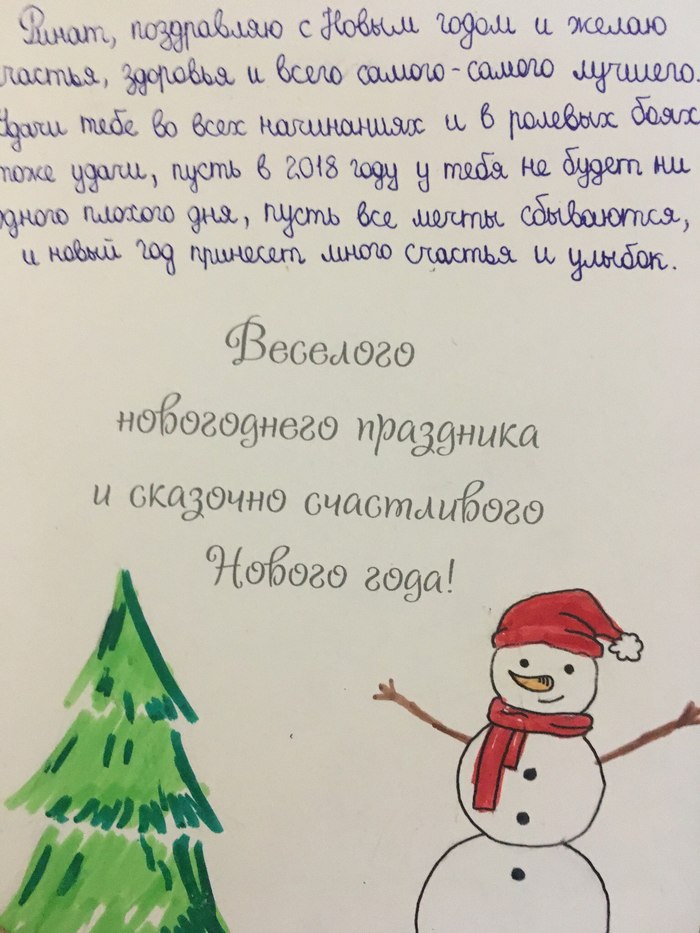 Ринат, поздравляю с Новым годом и желаю
частья, здоровья и всего самого-самого лучшего.
Удачи тебе во всех начинаниях и в ролевых боях
тоже удачи, пусть в 2018 году у тебя не будет ни
одного плохого дня, пусть все мечты сбываются,
и новый год принесет много счастья и улыбок.
Веселого
новогоднего праздника
и сказочно счастливого
Нового года!